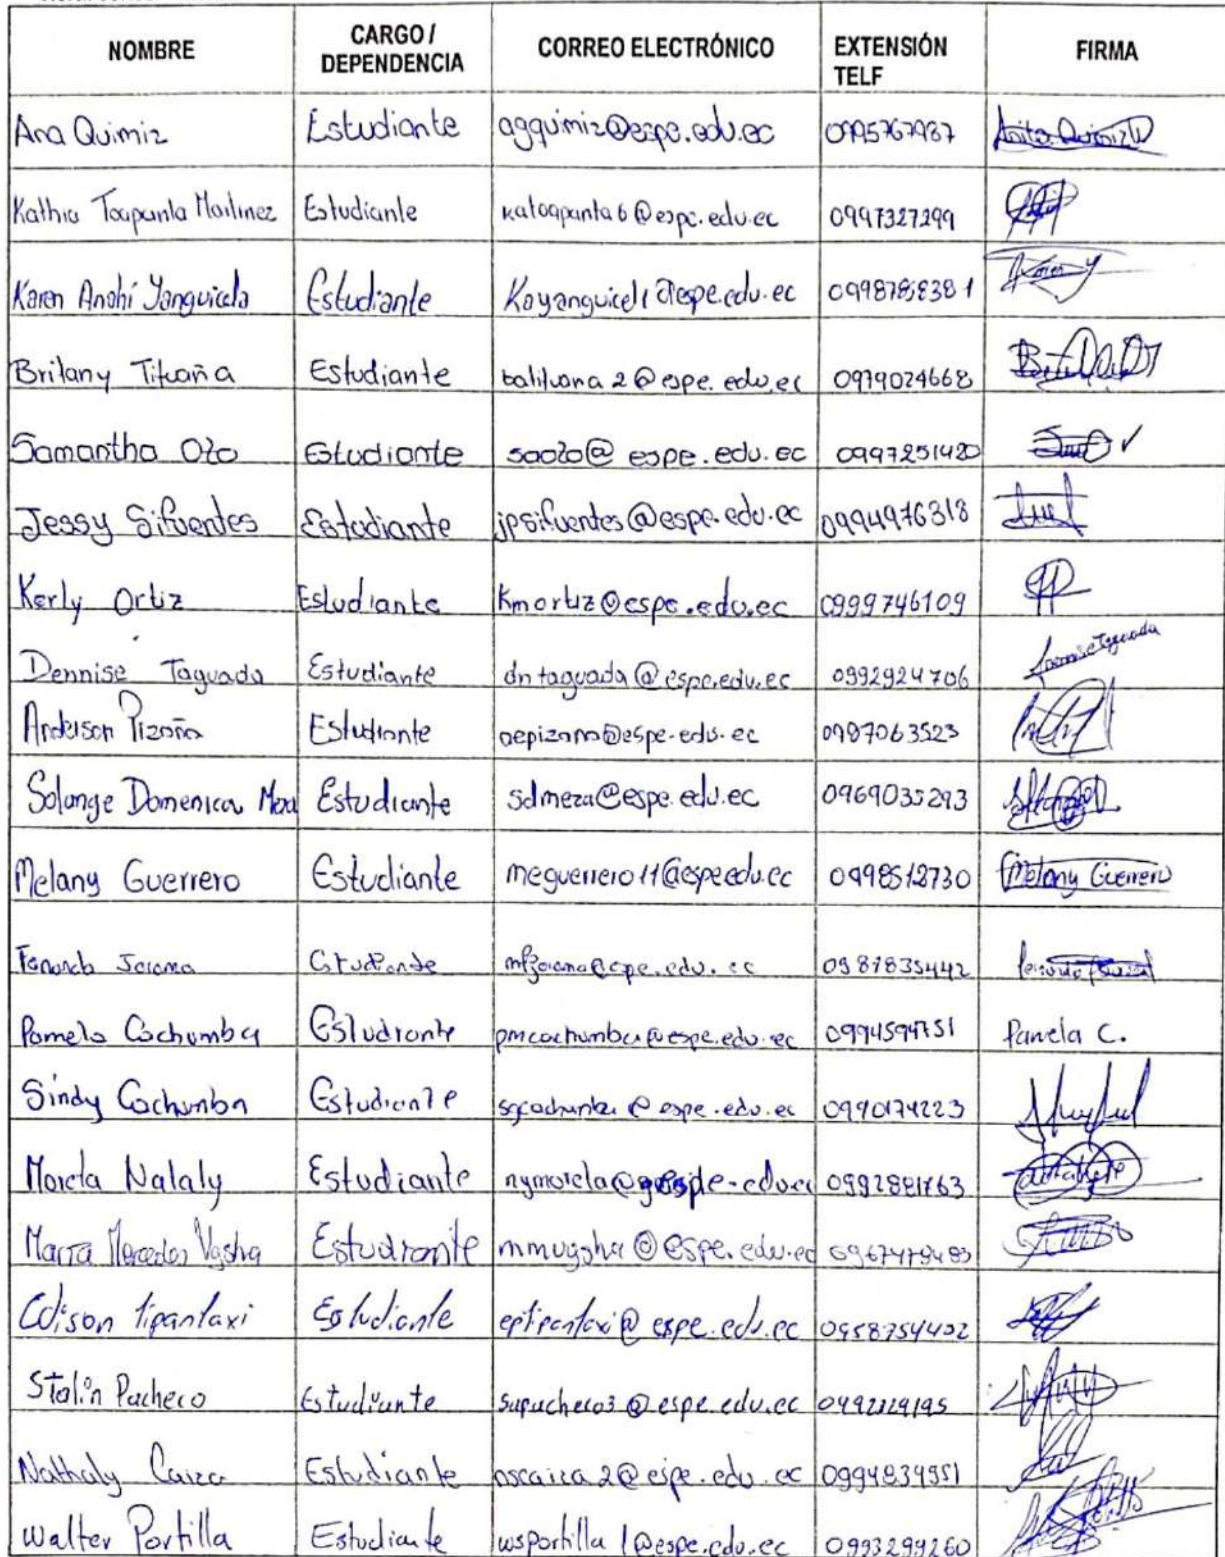 NOMBRE CARGO / DEPENDENCIA CORREO ELECTRÓNICO EXTENSIÓN TELF FIRMA
Ana Quimiz Estudiante agquimiz@espe.edu.ec 0995767987
Kathia Toapanta Martinez Estudiante katoapanta6@espe.edu.ec 0997327299
Karen Anahí Yanguicela Estudiante Kayanguicel1@espe.edu.ec 0998788381 Karen Y
Britany Tituaña Estudiante batituana2@espe.edu.ec 0979024668
Samantha Ozo Estudiante saozo@espe.edu.ec 0997251420
Jessy Sifuentes Estudiante jpsifuentes@espe.edu.ec 0994976318
Kerly Ortiz Estudiante Kmortiz@espe.edu.ec 0999746109
Dennise Taguada Estudiante dntaguada@espe.edu.ec 0992924706 Dennise Taguada
Anderson Pizaña Estudiante aepizana@espe.edu.ec 0987063523
Solange Domenica Meza Estudiante sdmeza@espe.edu.ec 0969035293
Melany Guerrero Estudiante meguerrero11@espe.edu.ec 0998512730 Melany Guerrero
Fernanda Estudiante 0987835442
Pamela Cachumba Estudiante pmcachumba@espe.edu.ec Pamela C.
Sindy Cachumba Estudiante sgcachumba@espe.edu.ec 0990174223
Moreta Nataly Estudiante 0992881763
Maria Mercedes Estudiante
Edison tipantaxi Estudiante eptipantaxi@espe.edu.ec 0958754402
Stalin Pacheco Estudiante sapacheco3@espe.edu.ec
Nathaly Caiza Estudiante nscaiza2@espe.edu.ec 0994834951
Walter Portilla Estudiante wsportilla1@espe.edu.ec 0993299260